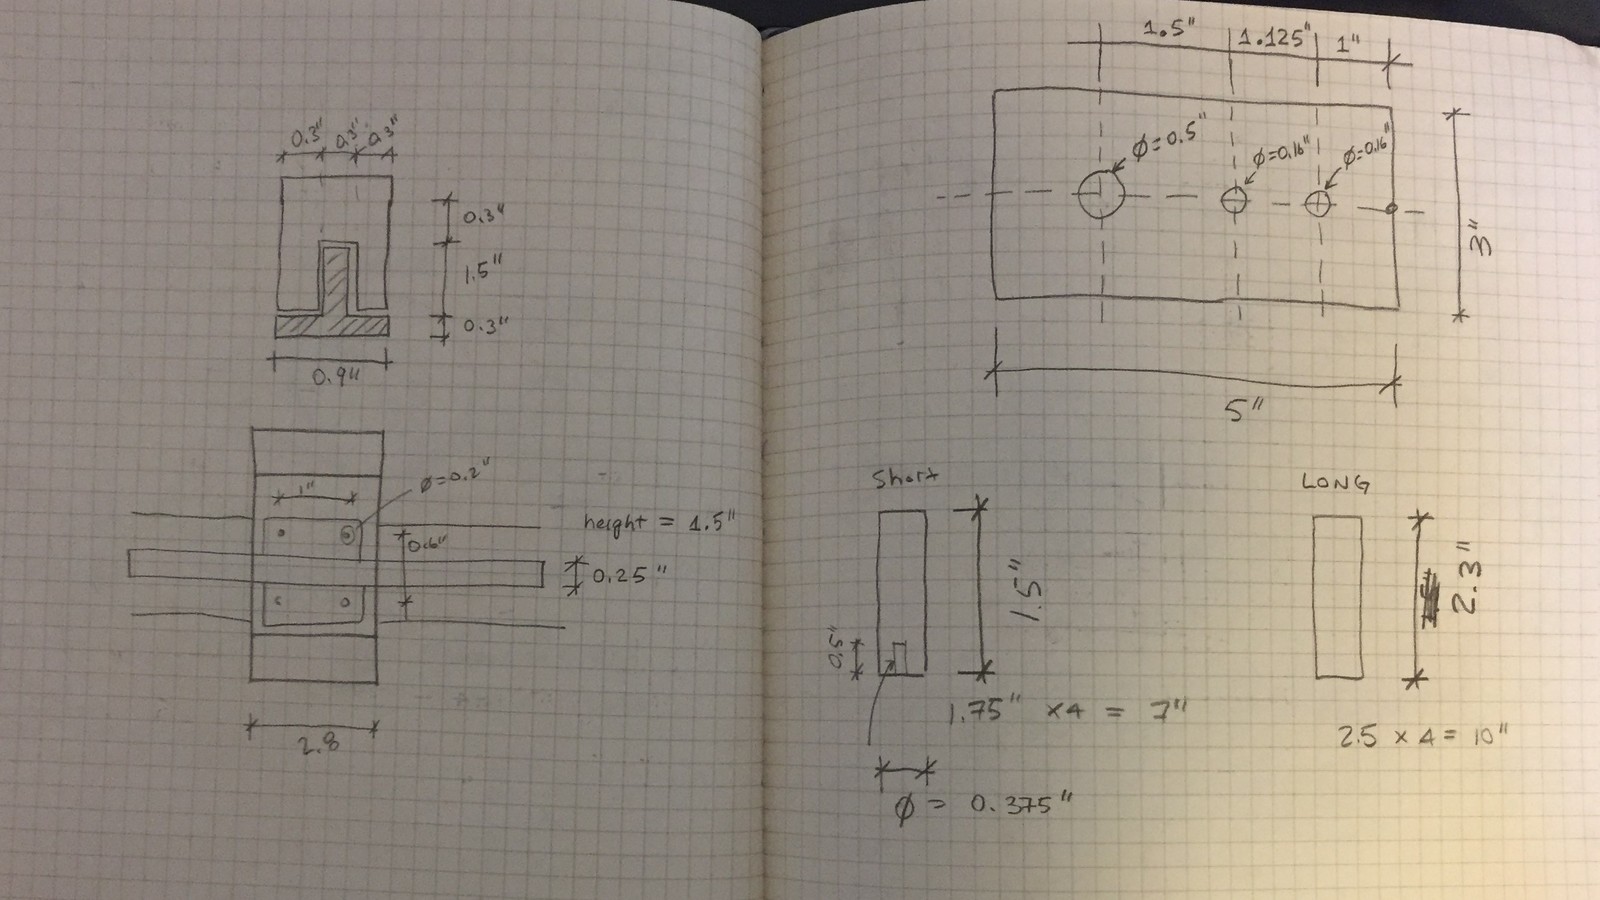 0.3" 0.3" 0.3"
0.3"
1.5"
0.3"
0.9"
1"
φ=0.2"
height = 1.5"
0.6"
0.25"
2.8
1.5" 1.125" 1"
φ=0.5"
φ=0.16"
φ=0.16"
3"
5"
Short
1.5"
0.5"
1.75" x4 = 7"
φ= 0.375"
LONG
2.3"
2.5 x 4 = 10"